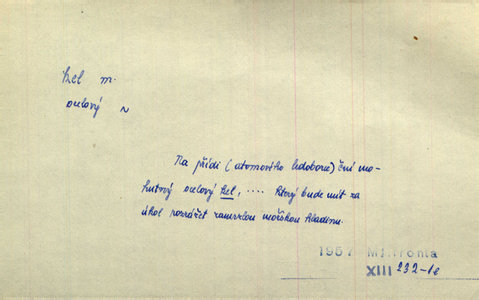 kel m.
ocelový ~
Na přídi (atomového ledoborce) ční mo-
hutný ocelový kel, .... který bude mít za
úkol rozrážet zamrzlou mořskou hladinu.
1957 Ml. fronta
XIII 232-1e